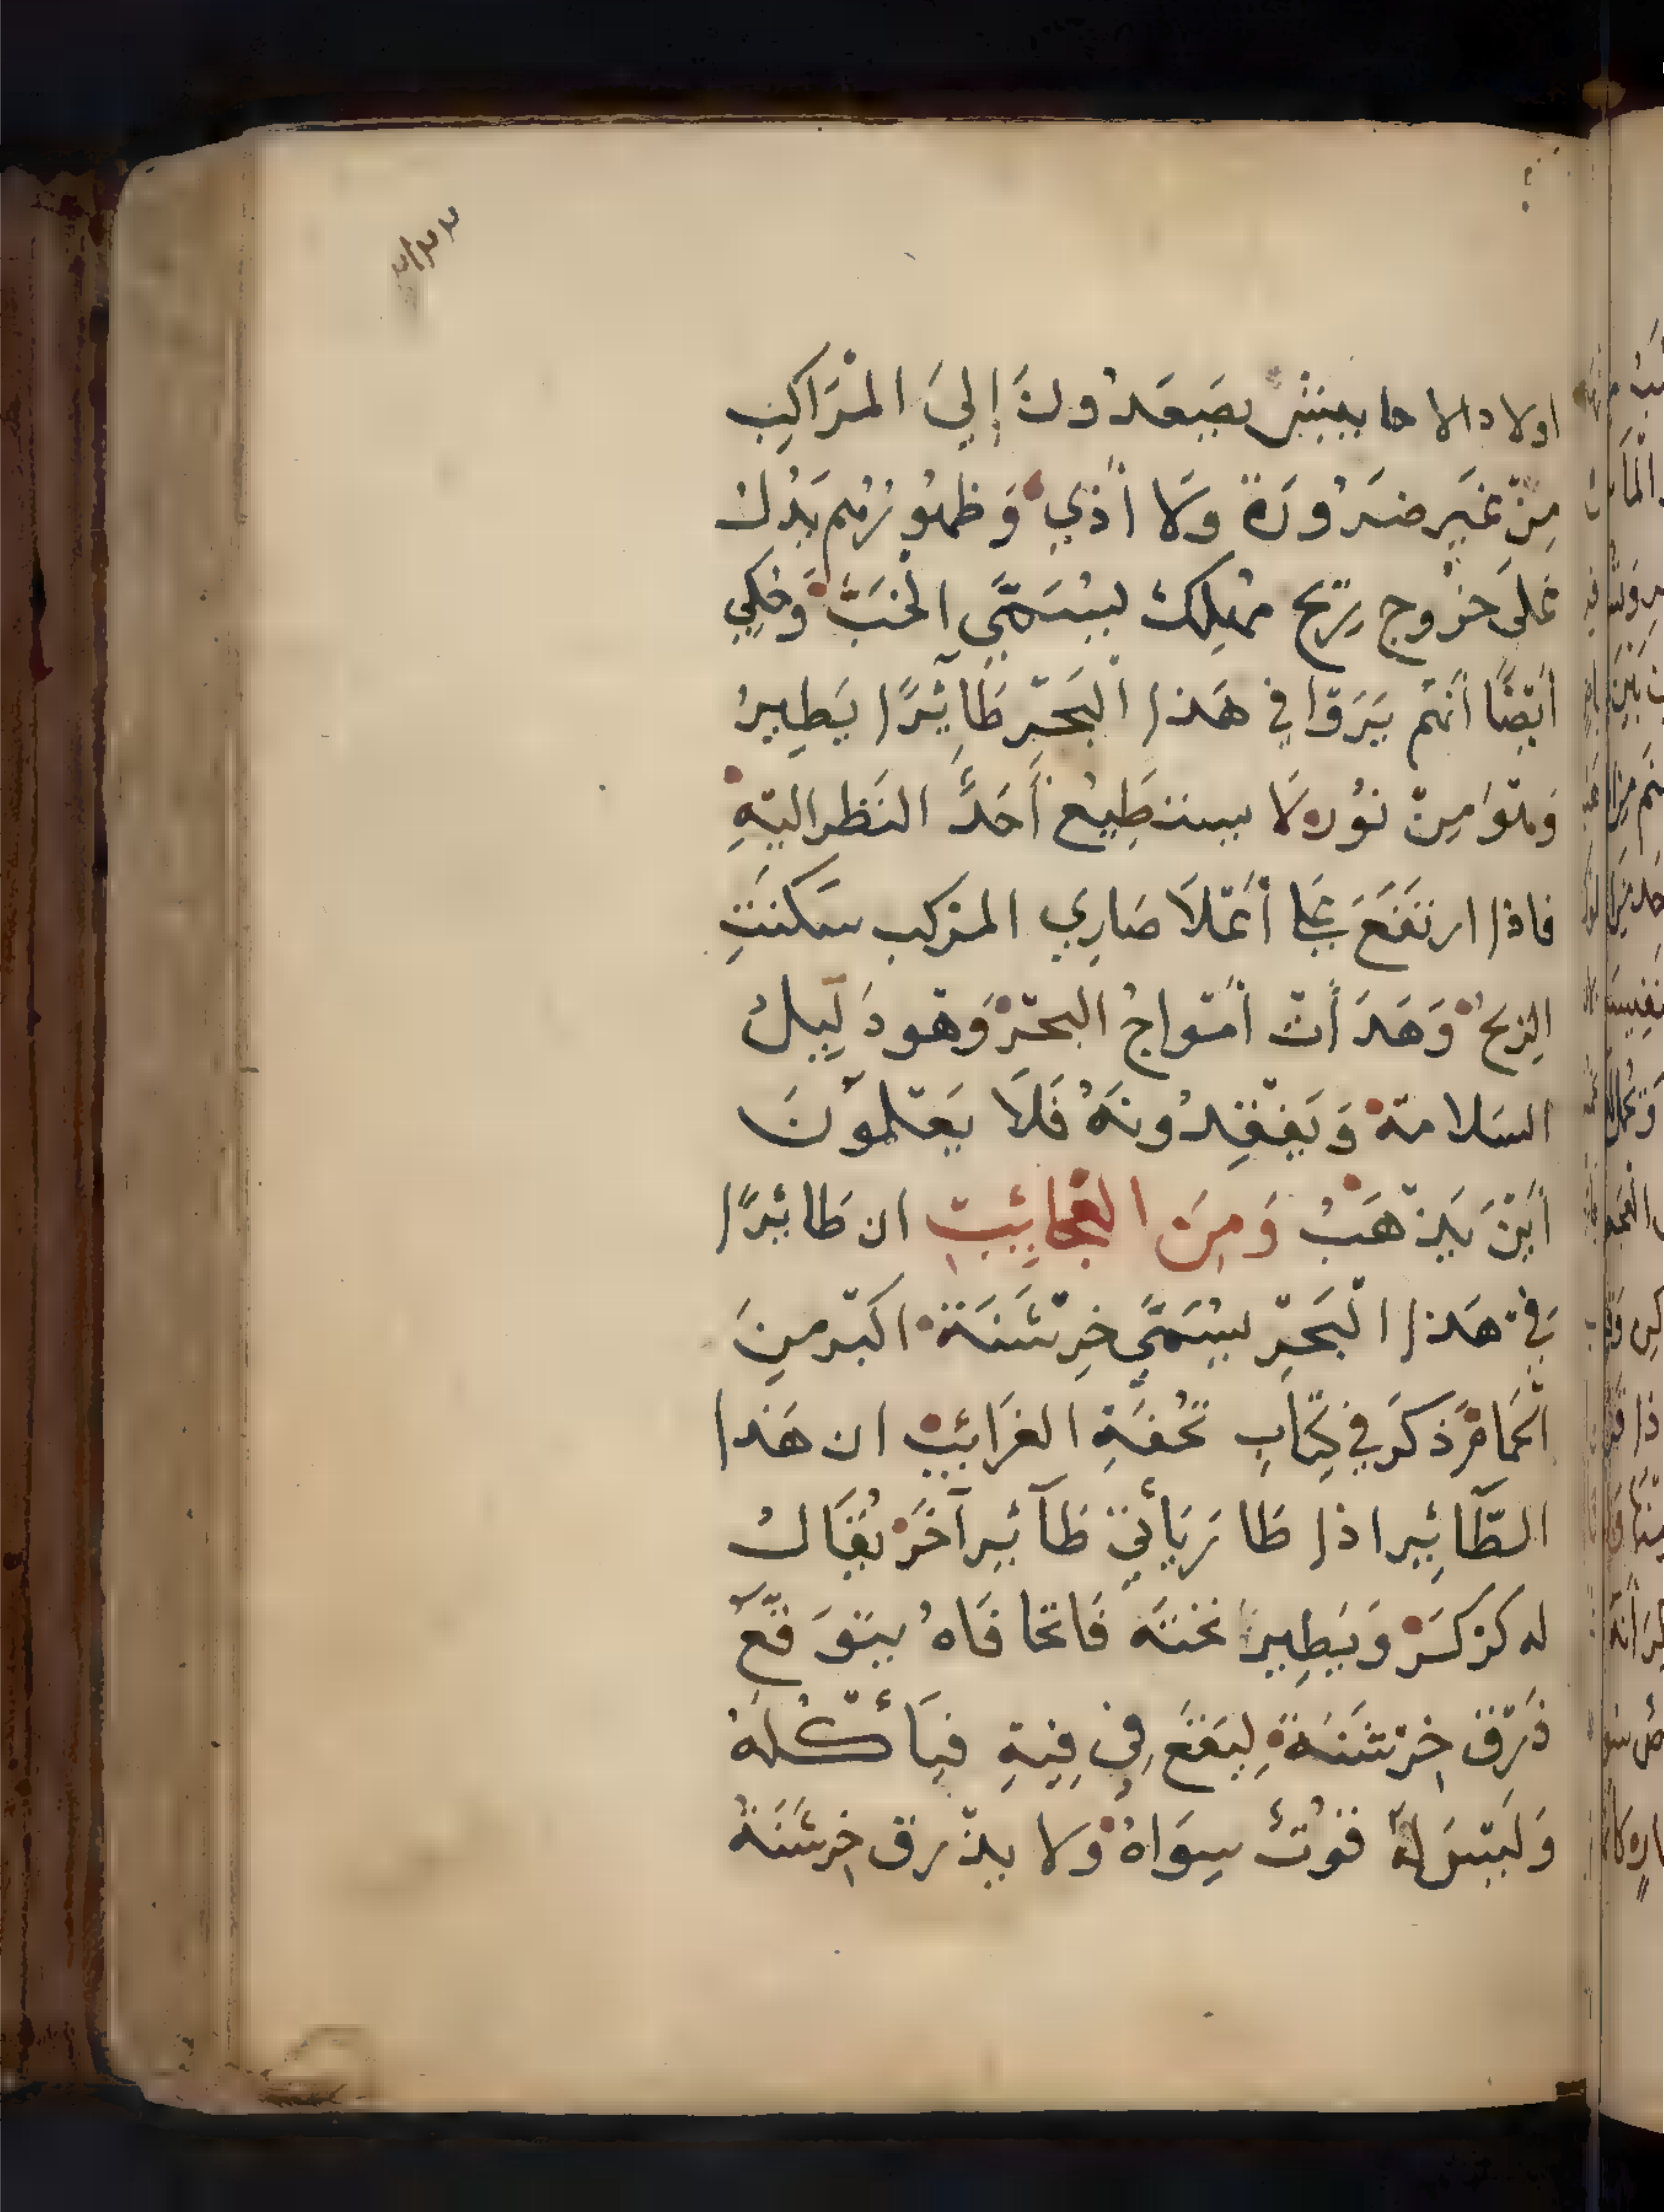 اولاد الاحابيش يصَعَدُونَ إِليَ المْرَاكِب
مِنْ غَيرِ ضَرُورَة وَلا أَذي وَظهُورُهم يَدُلُ
عَلىَ خرُوج رِيْح مُهلِكْ يُسَمَّي الخبّ وَحُكِي
أيْضًا أَنهُم يَرَوْا في هَذا الْبَحْرِ طَآئِرًا يَطِيرُ
وَهوَ مِنْ نوُره لَا يستَطِيعُ أَحَدٌ النَظر اليْهِ
فاذا ارتفَعَ عَلَى أَعْلَا صَارِي المَركب سَكَنَتِ
الرِيحُ وَهَدَأَتْ أمْواجُ البحْرْ وَهو دَلِيلُ
السَلامَة وَيَفْقِدُونَهُ فَلَا يَعْلمُوُنَ
أَيْنَ يَذْهَبُ وَمِنَ العَجَائِبِ ان طَائِرًا
في هَذا الْبَحْرِ يُسَمَّي خِرْشَنَة اكبْر مِنَ
الْحَمَامْ ذكَرَ في كِتَابِ تُحْفَةِ الغَرَائِبْ ان هَذا
الطَّآئِير اذا طَارَ يَأْتي طَآئِير آخَرْ يُقَالُ
له كرْكرَ وَيَطِير تَحْتَهُ فَاتحا فَاهُ يَتوَقّع
ذَرْق خِرْشَنَة لِيَقَعَ فِي فِيهِ فيَأْكُلُهُ
وَليْسَ لهُ قوُتْ سِوَاهُ وَلا يذْرق خِرشَنَةُ